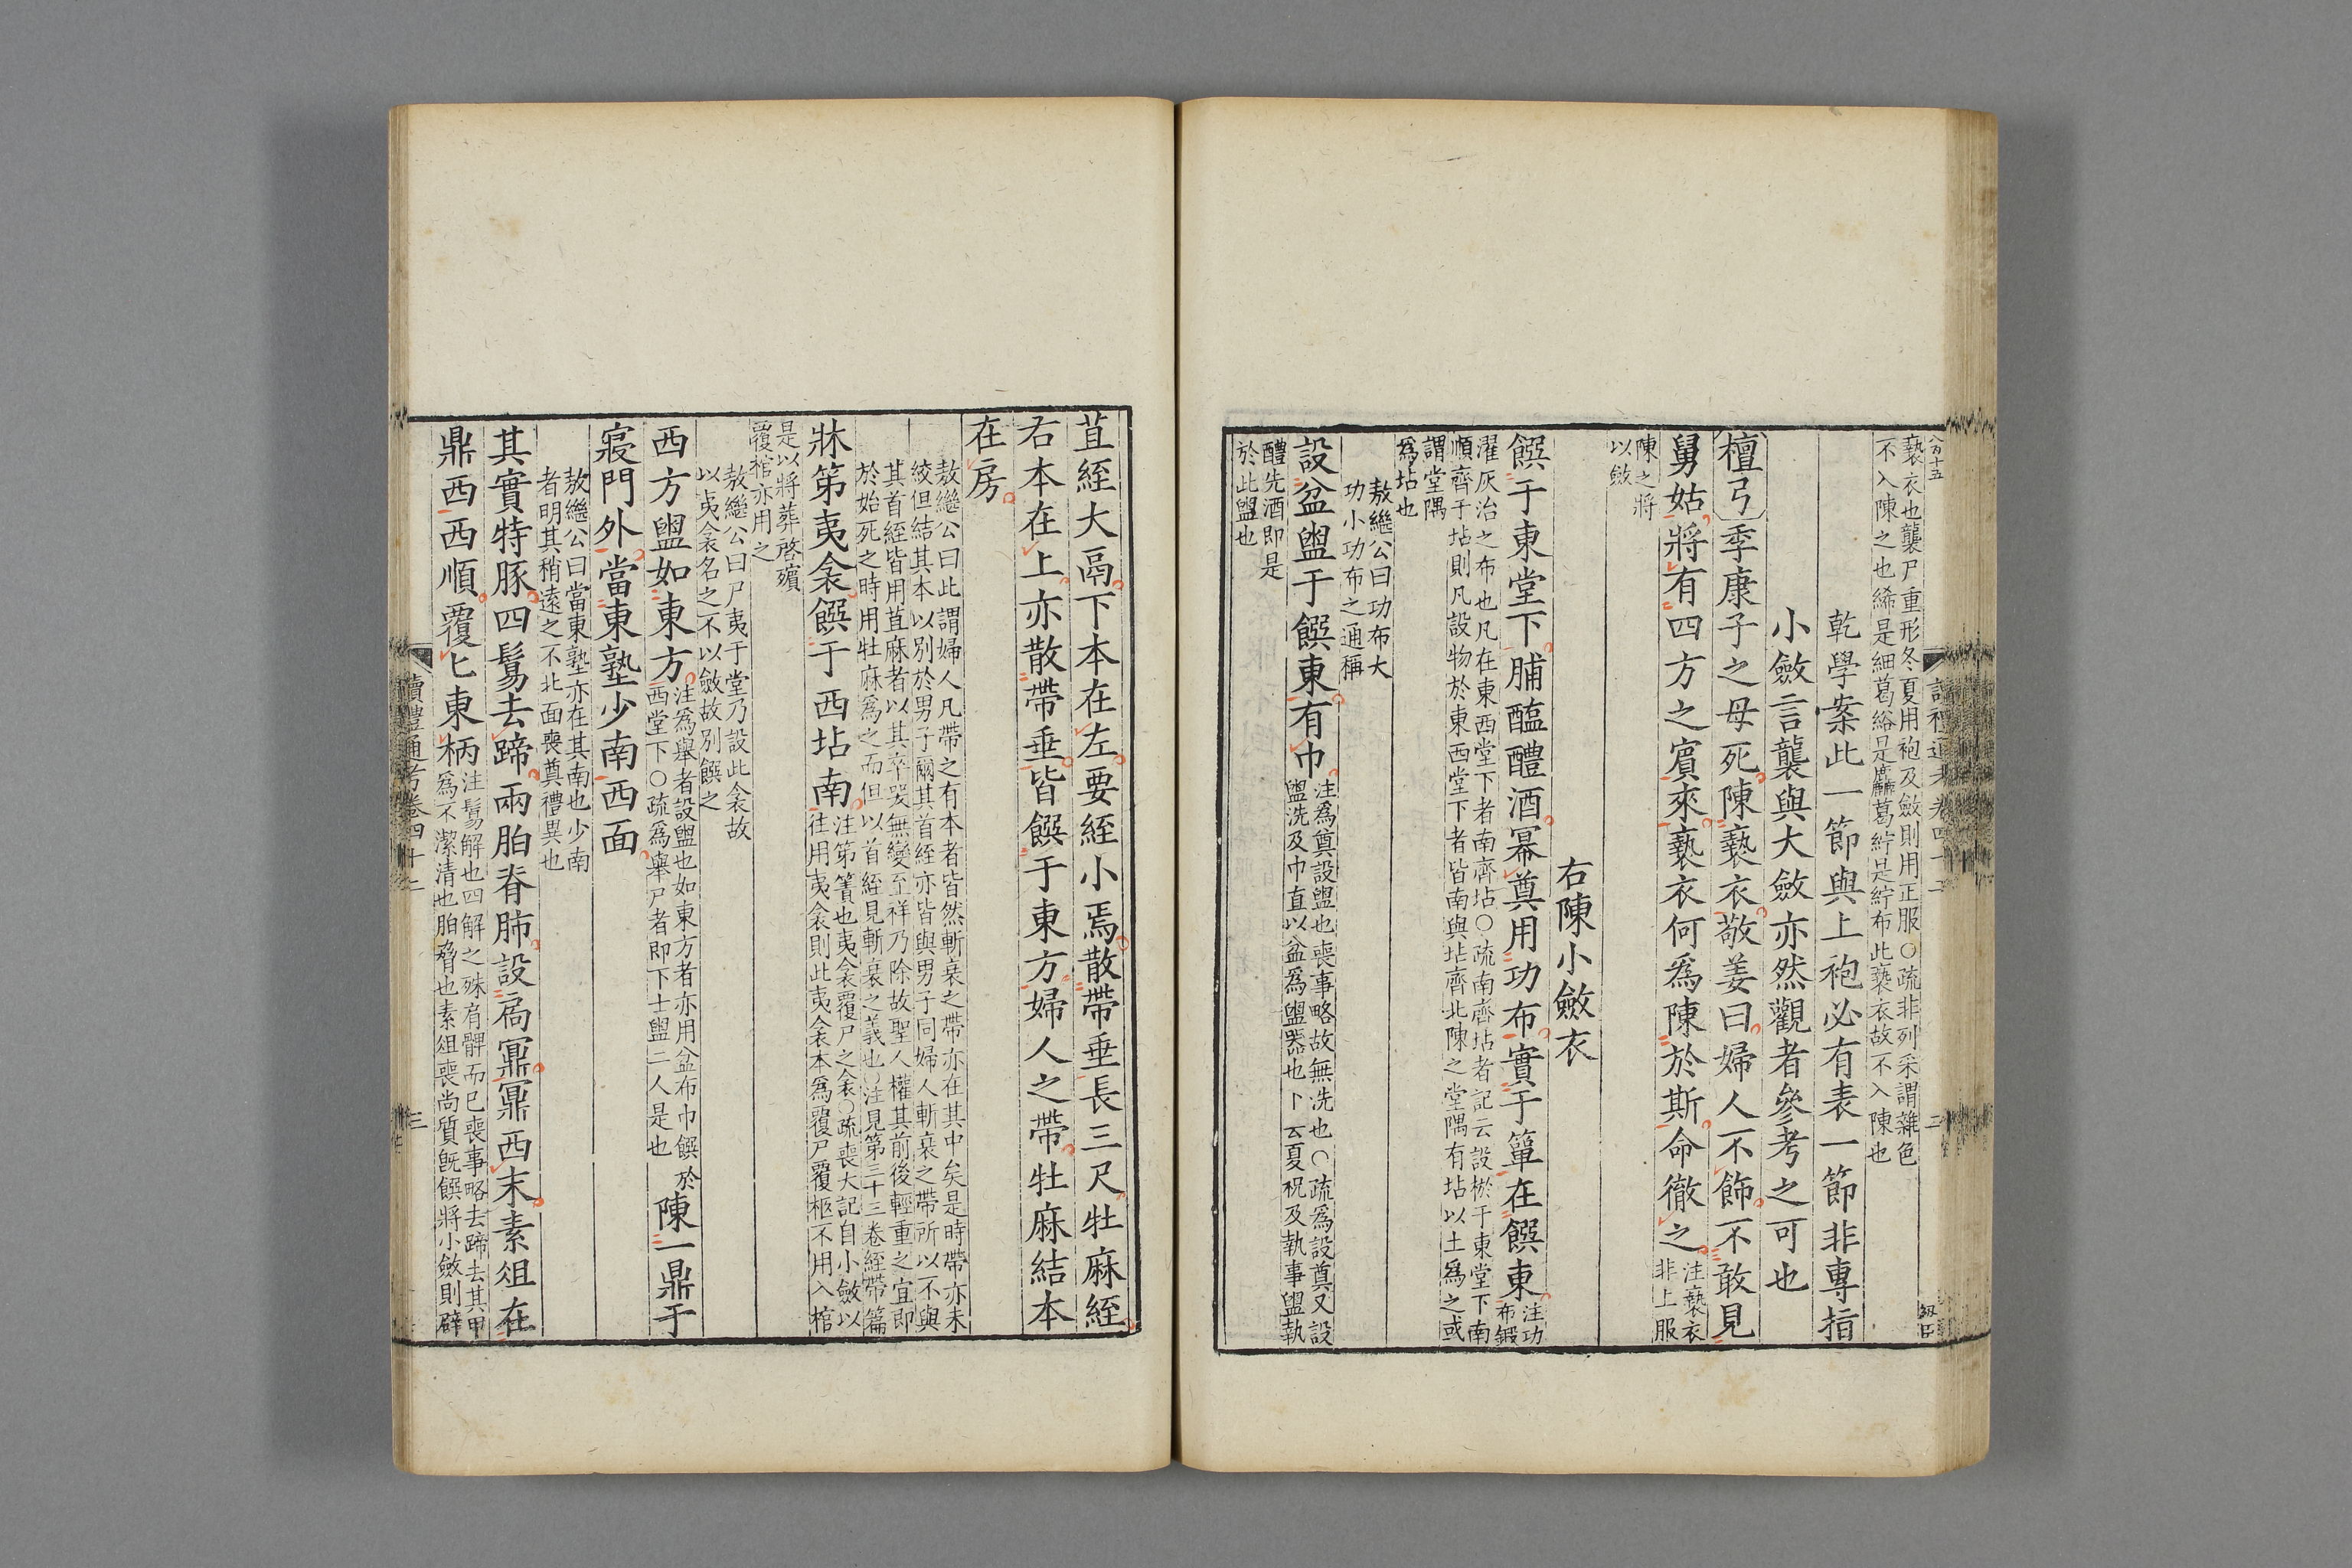 八百十五
褻衣也襲尸重形冬夏用袍及斂則用正服○疏非列采謂雜色
不入陳之也絺是細葛綌是麤葛紵是紵布此褻衣故不入陳也
乾學案此一節與上袍必有表一節非專指
小斂言襲與大斂亦然觀者參考之可也
檀弓季康子之母死陳褻衣敬姜曰婦人不飾不敢見
舅姑將有四方之賓來褻衣何爲陳於斯命徹之
注褻衣
非上服
陳之將
以斂
右陳小斂衣
饌于東堂下脯醢醴酒冪奠用功布實于簞在饌東
注功
布鍛
濯灰治之布也凡在東西堂下者南齊坫○疏南齊坫者記云設棜于東堂下南
順齊于坫則凡設物於東西堂下者皆南與坫齊北陳之堂隅有坫以土爲之或
謂堂隅
爲坫也
敖繼公曰功布大
功小功布之通稱
設盆盥于饌東有巾
注爲奠設盥也喪事略故無洗也○疏爲設奠又設
盥洗及巾直以盆爲盥器也下云夏祝及執事盥執
醴先酒即是
於此盥也
苴絰大鬲下本在左要絰小焉散帶垂長三尺牡麻絰
右本在上亦散帶垂皆饌于東方婦人之帶牡麻結本
在房
敖繼公曰此謂婦人凡帶之有本者皆然斬衰之帶亦在其中矣是時帶亦未
絞但結其本以別於男子爾其首絰亦皆與男子同婦人斬衰之帶所以不與
其首絰皆用苴麻者以其卒哭無變至祥乃除故聖人權其前後輕重之宜即
於始死之時用牡麻爲之而但以首絰見斬衰之義也○注見第三十三卷絰帶篇
牀笫夷衾饌于西坫南
注笫簀也夷衾覆尸之衾○疏喪大記自小斂以
往用夷衾則此夷衾本爲覆尸覆柩不用入棺
是以將葬啓殯
覆棺亦用之
敖繼公曰尸夷于堂乃設此衾故
以夷衾名之不以斂故別饌之
西方盥如東方
注爲舉者設盥也如東方者亦用盆布巾饌於
西堂下○疏爲舉尸者即下士盥二人是也
陳一鼎于
寢門外當東塾少南西面
敖繼公曰當東塾亦在其南也少南
者明其稍遠之不北面喪奠禮異也
其實特豚四鬄去蹄兩胉脊肺設扃鼏鼏西末素俎在
鼎西西順覆匕東柄
注鬄解也四解之殊肩髀而已喪事略去蹄去其甲
爲不潔清也胉脅也素俎喪尚質旣饌將小斂則辟
讀禮通考卷四十二
三